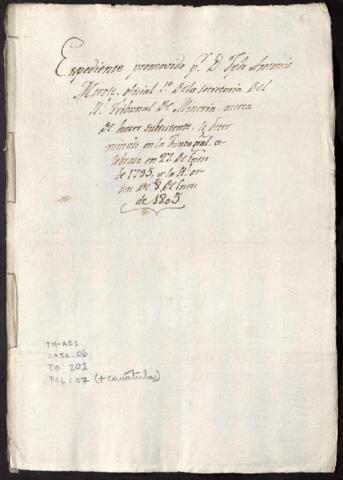 Expediente promovido pr. D. Josè Antonio
oficial 1o. de la secretaria del
Rl. Tribunal de Mineria acerca
de haver subsistente, lo deter
minado en la Junta gral. ce
lebrada en 27. de Enero
de 1795, y la Rl. or
den de 8. de Enero
de 1805
TM-AD1
CAJA: 06
DO: 201
FOL: 07 (+ carátula)